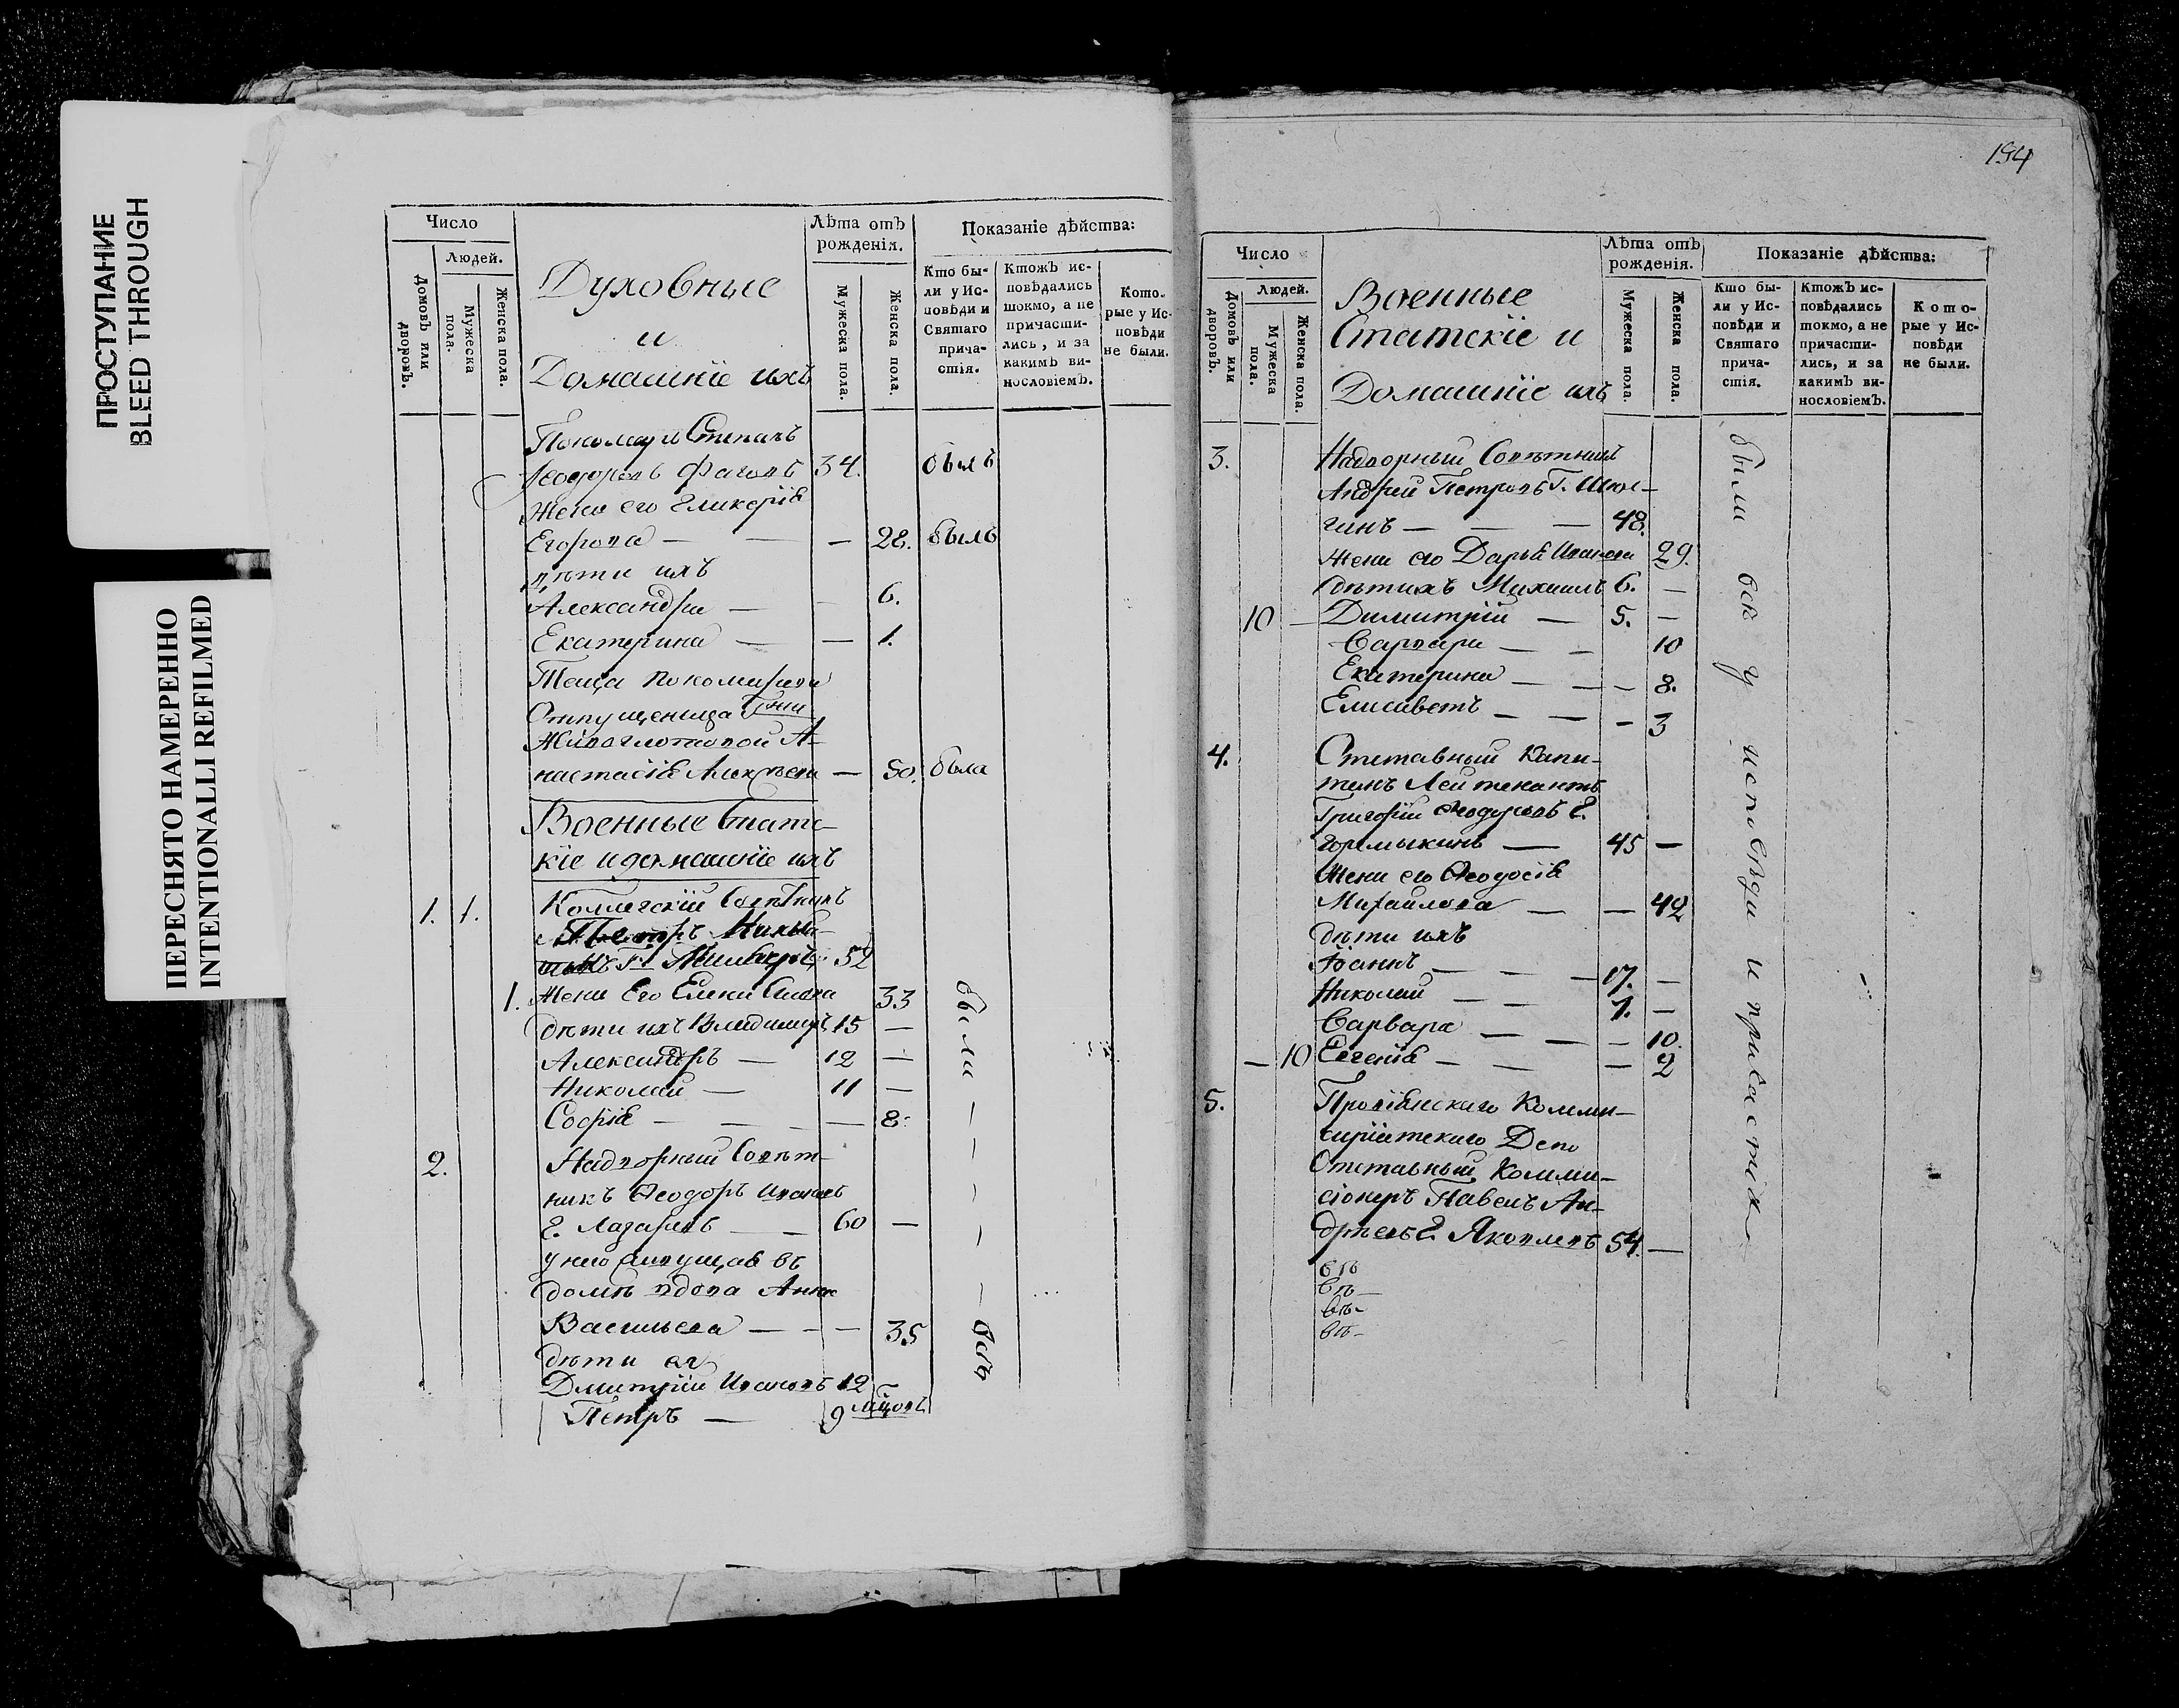 ПРОСТУПАНИЕ
BLEED THROUGH
ПЕРЕСНЯТО НАМЕРЕННО
INTENTIONALLI REFILMED
Число
Людей.
Домовъ или дворовъ.
Мужеска пола.
Женска пола.
Духовные
и
Домашніе ихъ
Лѣта отъ рожденія.
Мужеска пола.
Женска пола.
Показаніе дѣйства:
Кто бы-
ли у Ис-
повѣди и
Святаго
прича-
стія.
Ктожъ ис-
повѣдались
токмо, а не
причасти-
лись, и за
какимъ ви-
нословіемъ.
Кото-
рые у Ис-
повѣди
не были.
Пономарь Степанъ
Ѳеодоровъ 34. былъ
Жена его Гликерія
Егорова — — — 28. былъ
дѣти ихъ
Александра — — 6.
Екатерина — — 1.
Теща пономарева
Отпущеница
Анастасія — 50. была
Военные Статс-
кіе и домашніе ихъ
1. 1. Коллегскій Совѣтникъ
52
1. Жена Его Елена 33
дѣти ихъ Владимиръ 15 —
Александръ — 12 —
Николай — 11 —
Софія — — — — 8.
2. Надворный Совѣт-
никъ Ѳеодоръ Ивановъ
Г. Лазаревъ — — 60 —
у него живущая въ
домѣ вдова Анна
Васильева — — — 35
дѣти ея
Дмитрій Ивановъ 12
Петръ — 9
были — — — — — всѣ
194
Число
Людей.
Домовъ или дворовъ.
Мужеска пола.
Женска пола.
Военные
Статскіе и
Домашніе ихъ
Лѣта отъ рожденія.
Мужеска пола.
Женска пола.
Показаніе дѣйства:
Кто бы-
ли у Ис-
повѣди и
Святаго
прича-
стія.
Ктожъ ис-
повѣдались
токмо, а не
причасти-
лись, и за
какимъ ви-
нословіемъ.
Кото-
рые у Ис-
повѣди
не были.
3. Надворный Совѣтникъ
Андрей Петровъ Г.
гинъ — — — 48.
Жена его Дарья Иванова 29.
дѣти ихъ Михаилъ 6. —
10 — Димитрій — 5. —
Варвара — — 10
Екатерина — — — 8.
Елисаветъ — — — 3
4. Отставный Капи-
танъ Лейтенантъ
Григорій Ѳеодоровъ Г.
Горемыкинъ — 45 —
Жена его Ѳеодосія
Михайлова — — 42
дѣти ихъ
Іоаннъ — — — 17. —
Николай — — 7. —
Варвара — — — 10.
— 10 Евгенія — — — 2
5. Провіантскаго Комми-
саріатскаго Депо
Отставный Комми-
сіонеръ Павелъ Ан-
дреевъ Г. Яковлевъ 54. —
въ
въ —
въ —
въ —
были всѣ у исповѣди и причастія